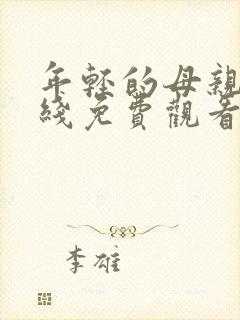 年轻的母親
綫免費觀看
李雄